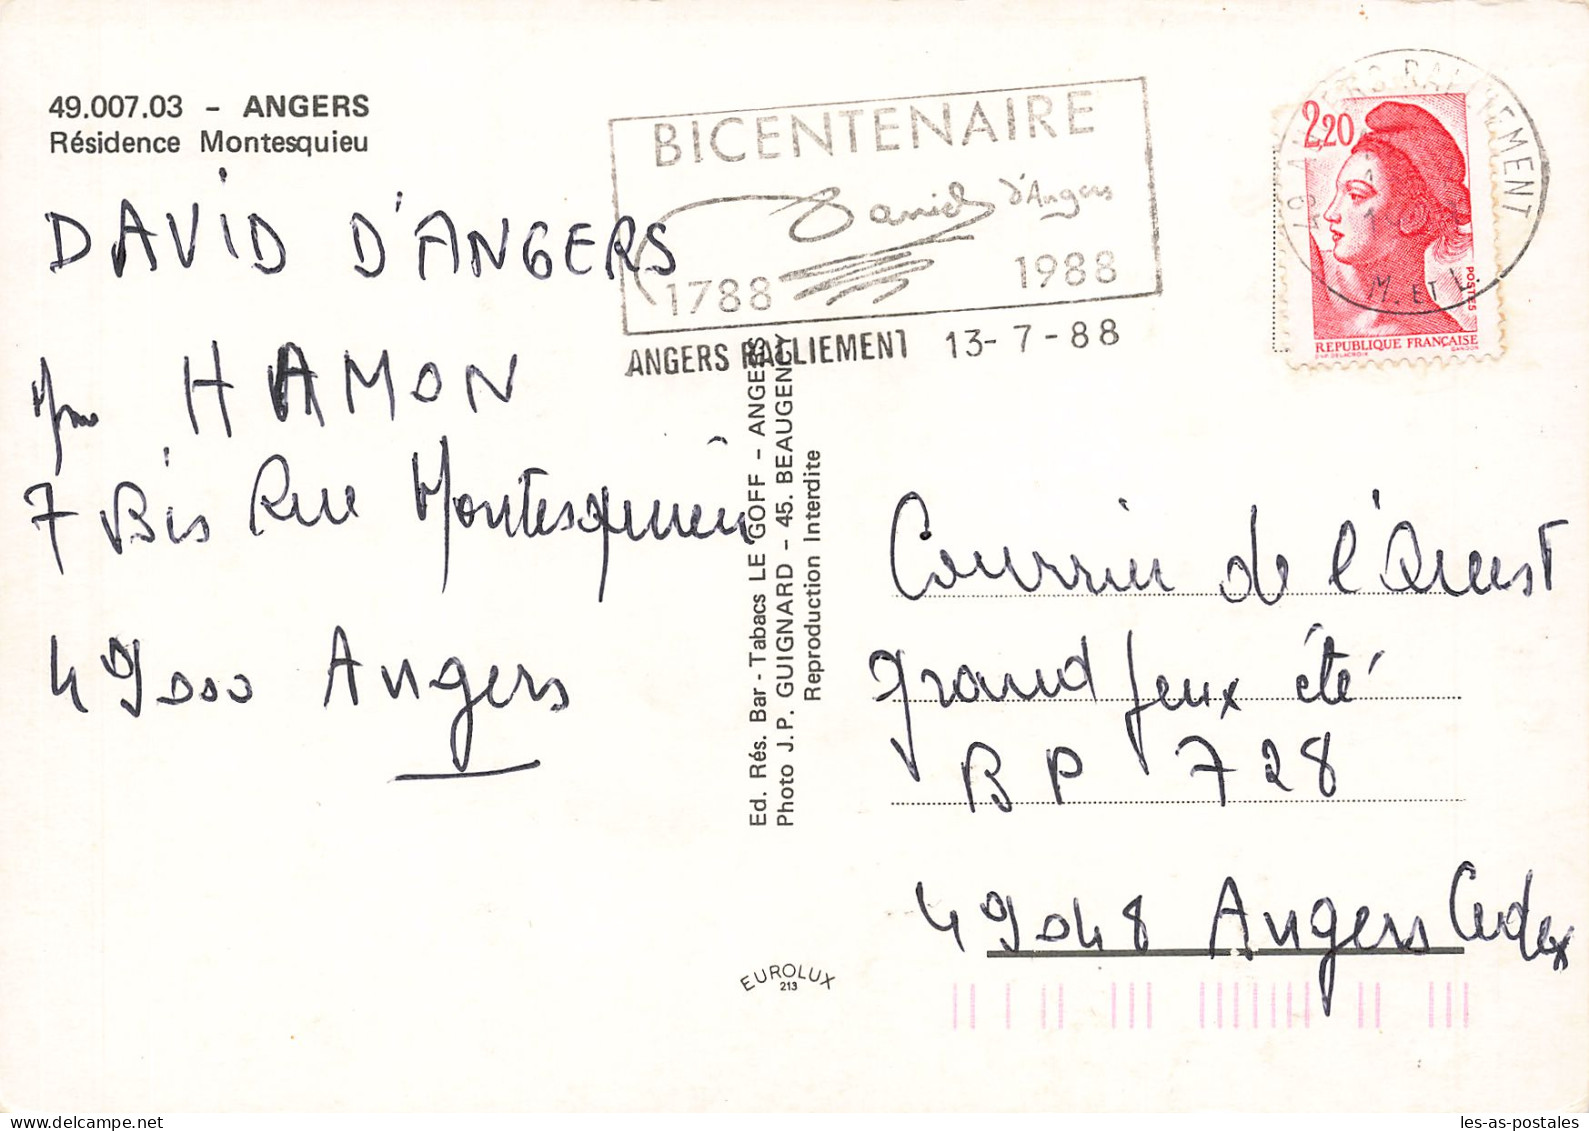 49.007.03 - ANGERS
Résidence Montesquieu
DAVID D'ANGERS
Mme HAMON
7 Bis Rue Montesquieu
49000 Angers
BICENTENAIRE
David d'Angers
1788 1988
ANGERS RALLIEMENT 13-7-88
49 ANGERS RALLIEMENT
M. ET L.
2,20
POSTES
REPUBLIQUE FRANÇAISE
D'AP. DELACROIX GANDON
Ed. Rés. Bar - Tabacs LE GOFF - ANGERS
Photo J.P. GUIGNARD - 45. BEAUGENCY
Reproduction Interdite
Courrier de l'Ouest
grand jeux été
BP 728
49048 Angers Cedex
EUROLUX
213
les-as-postales